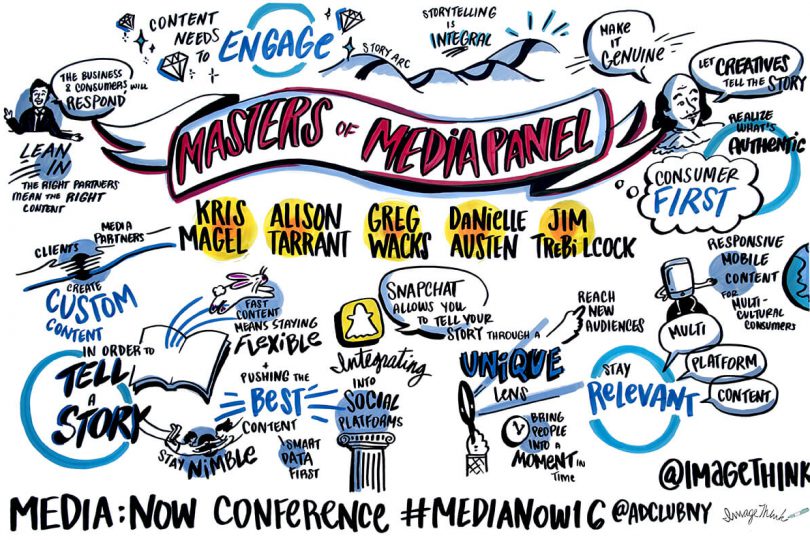 CONTENT
NEEDS
TO
ENGAGE
STORY ARC
STORYTELLING
IS
INTEGRAL
MAKE
IT
GENUINE
LET CREATIVES
TELL THE STORY
THE BUSINESS
& CONSUMERS WILL
RESPOND
LEAN
IN
THE RIGHT PARTNERS
MEAN THE RIGHT
CONTENT
MASTERS OF MEDIA PANEL
REALIZE
WHAT'S
AUTHENTIC
CONSUMER
FIRST
KRIS
MAGEL
ALISON
TARRANT
GREG
WACKS
DANIELLE
AUSTEN
JIM
TREBILCOCK
CLIENTS
MEDIA
PARTNERS
CREATE
CUSTOM
CONTENT
IN ORDER TO
TELL
A
STORY
FAST
CONTENT
MEANS STAYING
FLEXIBLE
+
PUSHING THE
BEST
CONTENT
STAY NIMBLE
SMART
DATA
FIRST
SNAPCHAT
ALLOWS YOU
TO TELL YOUR
STORY THROUGH A
UNIQUE
LENS
Integrating
INTO
SOCIAL
PLATFORMS
REACH
NEW
AUDIENCES
BRING
PEOPLE
INTO A
MOMENT IN
TIME
RESPONSIVE
MOBILE
CONTENT
FOR
MULTI-
CULTURAL
CONSUMERS
STAY
RELEVANT
MULTI
PLATFORM
CONTENT
@IMAGETHINK
MEDIA:NOW CONFERENCE #MEDIANOW16 @ADCLUBNY
ImageThink